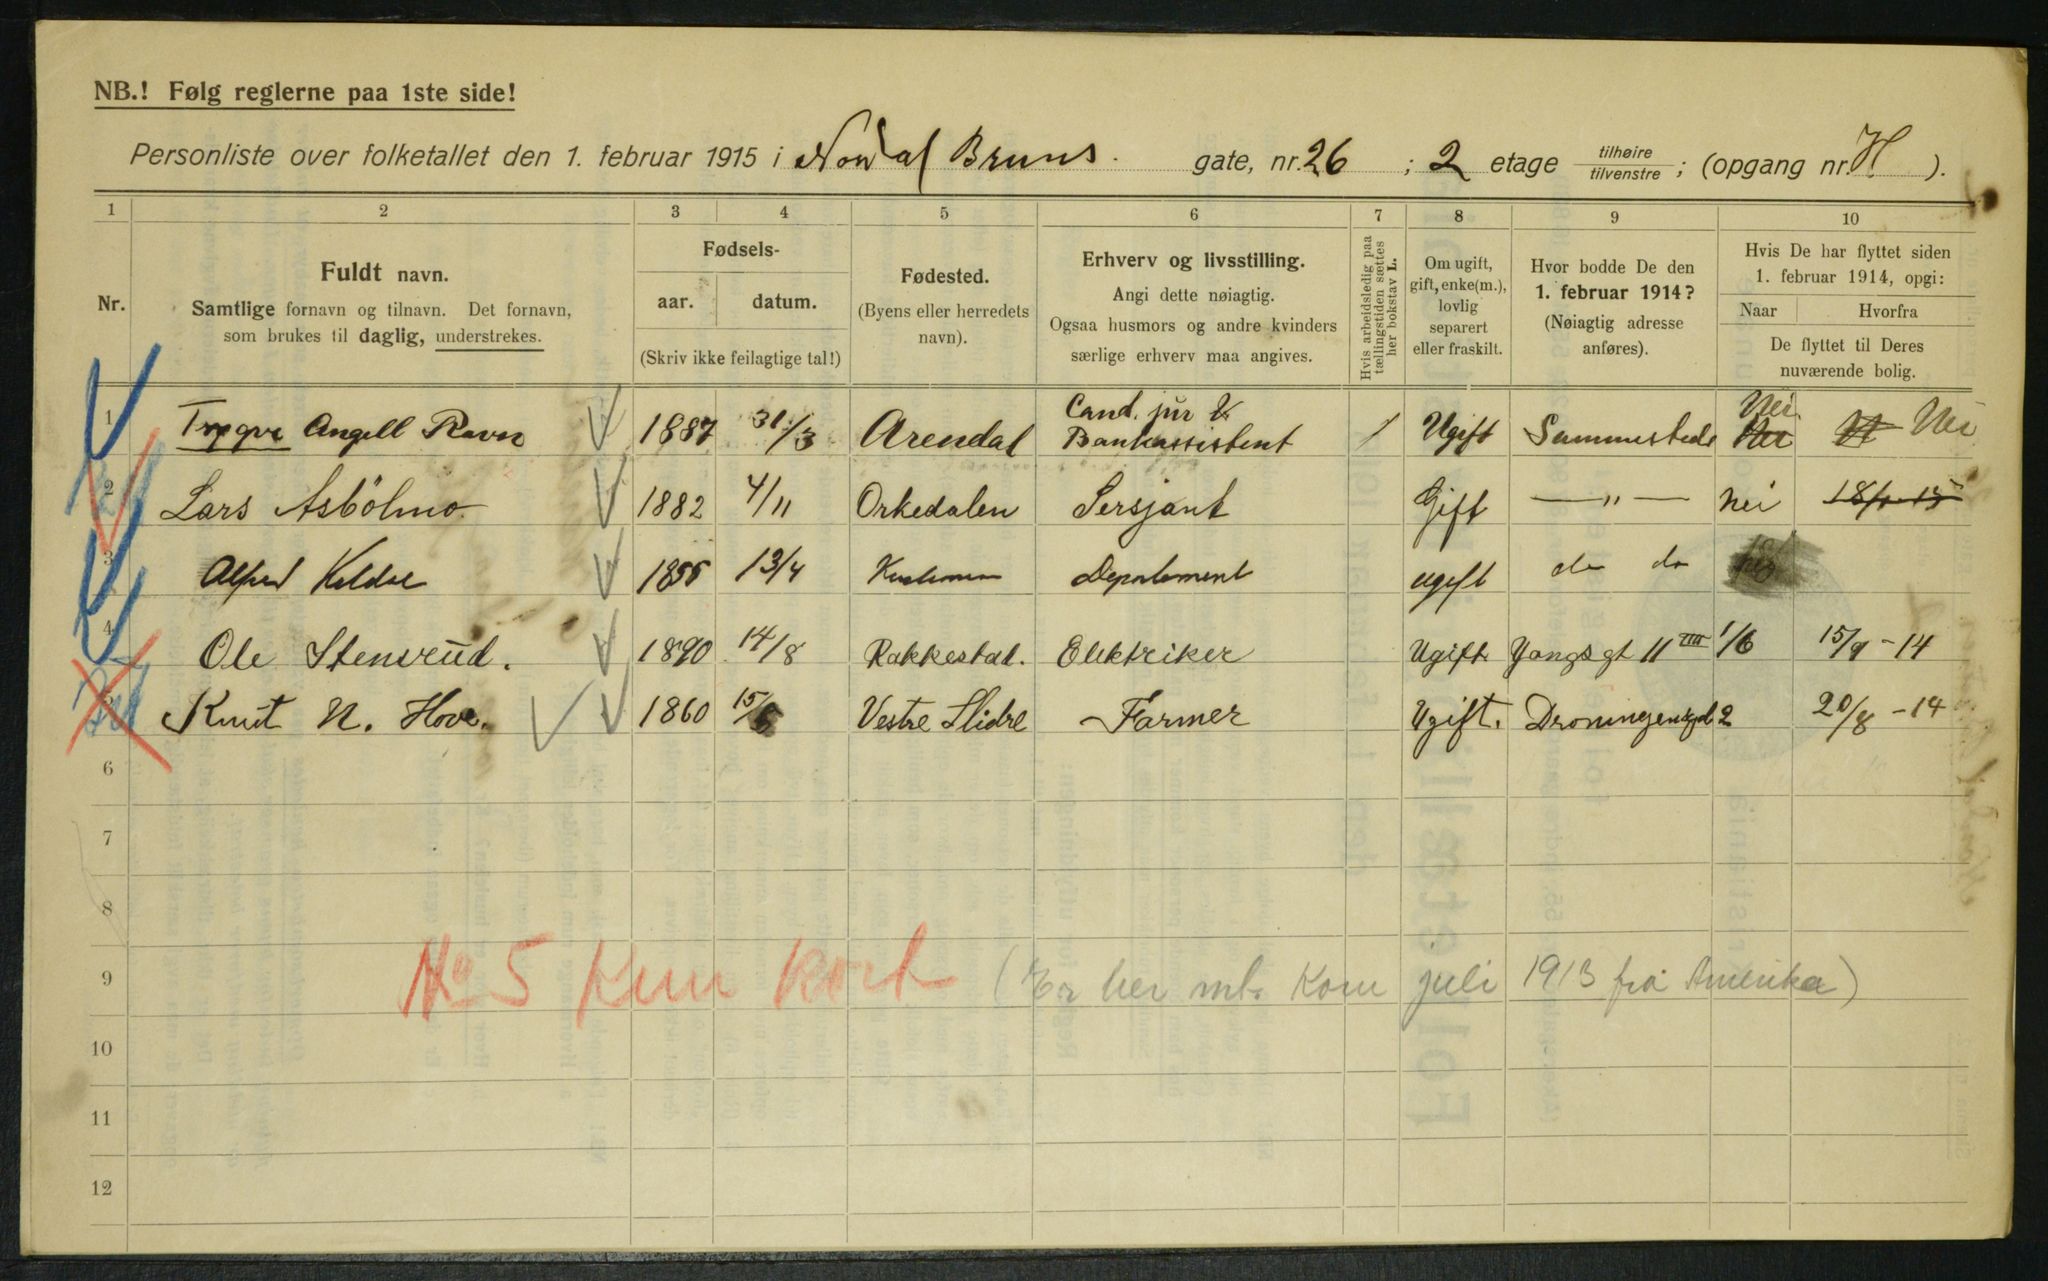 NB.! Følg reglerne paa 1ste side!
Personliste over folketallet den 1. februar 1915 i Nordal Bruns gate, nr. 26 ; 2 etage tilhøire tilvenstre ; (opgang nr. H ).
1 2 3 4 5 6 7 8 9 10
Nr.
Fuldt navn.
Samtlige fornavn og tilnavn. Det fornavn,
som brukes til daglig, understrekes.
Fødsels-
aar. datum.
(Skriv ikke feilagtige tal!)
Fødested.
(Byens eller herredets
navn).
Erhverv og livsstilling.
Angi dette nøiagtig.
Ogsaa husmors og andre kvinders
særlige erhverv maa angives.
Hvis arbeidsledig paa
tællingstiden sættes
her bokstav L.
Om ugift,
gift, enke(m.),
lovlig
separert
eller fraskilt.
Hvor bodde De den
1. februar 1914?
(Nøiagtig adresse
anføres).
Hvis De har flyttet siden
1. februar 1914, opgi:
Naar Hvorfra
De flyttet til Deres
nuværende bolig.
1 Trygve Angell Ravn 1887 31/3 Arendal Cand. jur Bankassistent / Ugift Sammesteds Nei Nei
2 Lars Asbölmo 1882 4/11 Orkedalen Sersjant Gift — " — Nei 18/1-15
3 Alfred 13/4 Departement ugift do do
4 Ole Stensrud. 1890 14/8 Rakkestad. Elektriker Ugift Yongsgt 11 1/6 15/9 - 14
5 Knut N. Hove. 1860 15/ Vestre Slidre Farmer Ugift. 2 20/8 - 14
6
7
8
9 No 5 Kun kort (Er her mt. Kom juli 1913 fra Amerika)
10
11
12